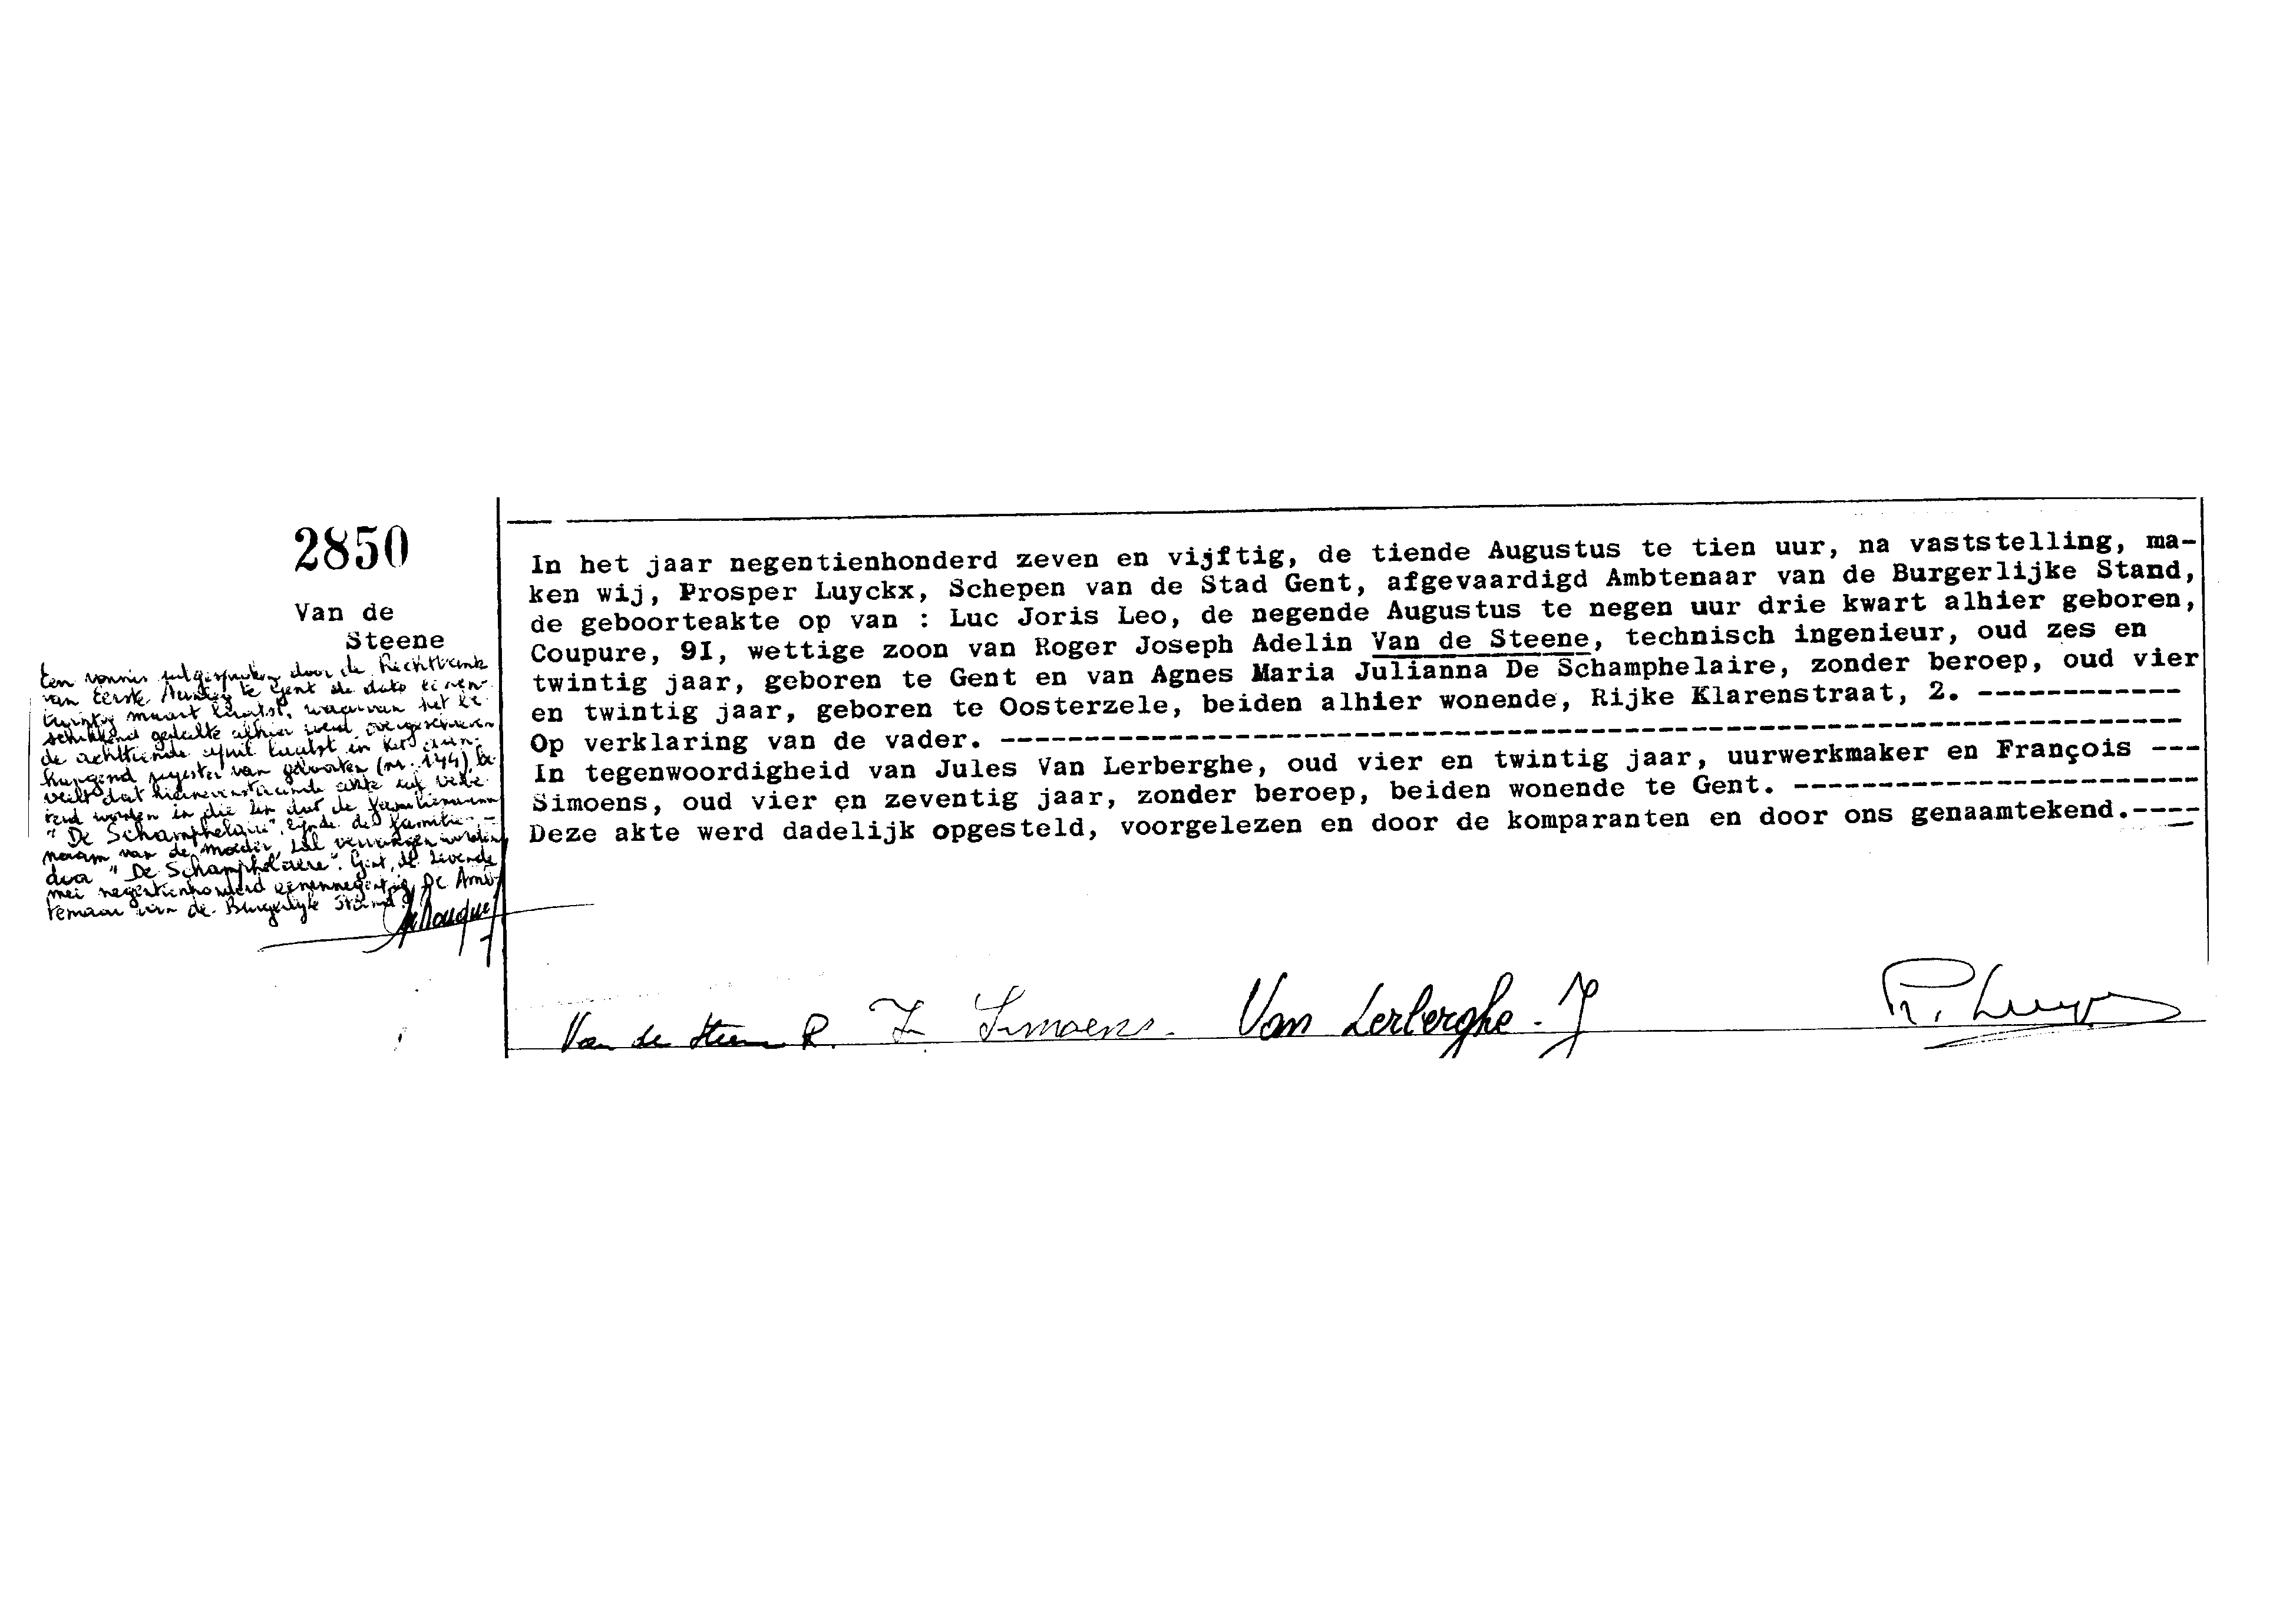 2850
Van de
Steene
Een vonnis uitgesproken door de Rechtbank
van Eerste Aanleg te Gent de dato eenen-
twintig maart laatst, waarvan het be-
schikkend gedeelte alhier werd overgeschreven
de achttiende april laatst in het aan-
hangend register van geboorten (nr. 144), be-
veelt dat hiernevenstaande akte zal verbe-
terd worden in die zin dat de familienaam
"De Schamphelaire", zijnde de familie-
naam van de moeder, zal vervangen worden
door "De Schamphelaere". Gent, de zevende
mei negentienhonderd eenennegentig. De Amb-
tenaar van de Burgerlijke Stand
In het jaar negentienhonderd zeven en vijftig, de tiende Augustus te tien uur, na vaststelling, ma-
ken wij, Prosper Luyckx, Schepen van de Stad Gent, afgevaardigd Ambtenaar van de Burgerlijke Stand,
de geboorteakte op van : Luc Joris Leo, de negende Augustus te negen uur drie kwart alhier geboren,
Coupure, 9I, wettige zoon van Roger Joseph Adelin Van de Steene, technisch ingenieur, oud zes en
twintig jaar, geboren te Gent en van Agnes Maria Julianna De Schamphelaire, zonder beroep, oud vier
en twintig jaar, geboren te Oosterzele, beiden alhier wonende, Rijke Klarenstraat, 2. ------------
Op verklaring van de vader. ----------------------------------------------------------------------
In tegenwoordigheid van Jules Van Lerberghe, oud vier en twintig jaar, uurwerkmaker en François ---
Simoens, oud vier en zeventig jaar, zonder beroep, beiden wonende te Gent. ------------------------
Deze akte werd dadelijk opgesteld, voorgelezen en door de komparanten en door ons genaamtekend.----
Van de Steene R. F. Simoens. Van Lerberghe. J